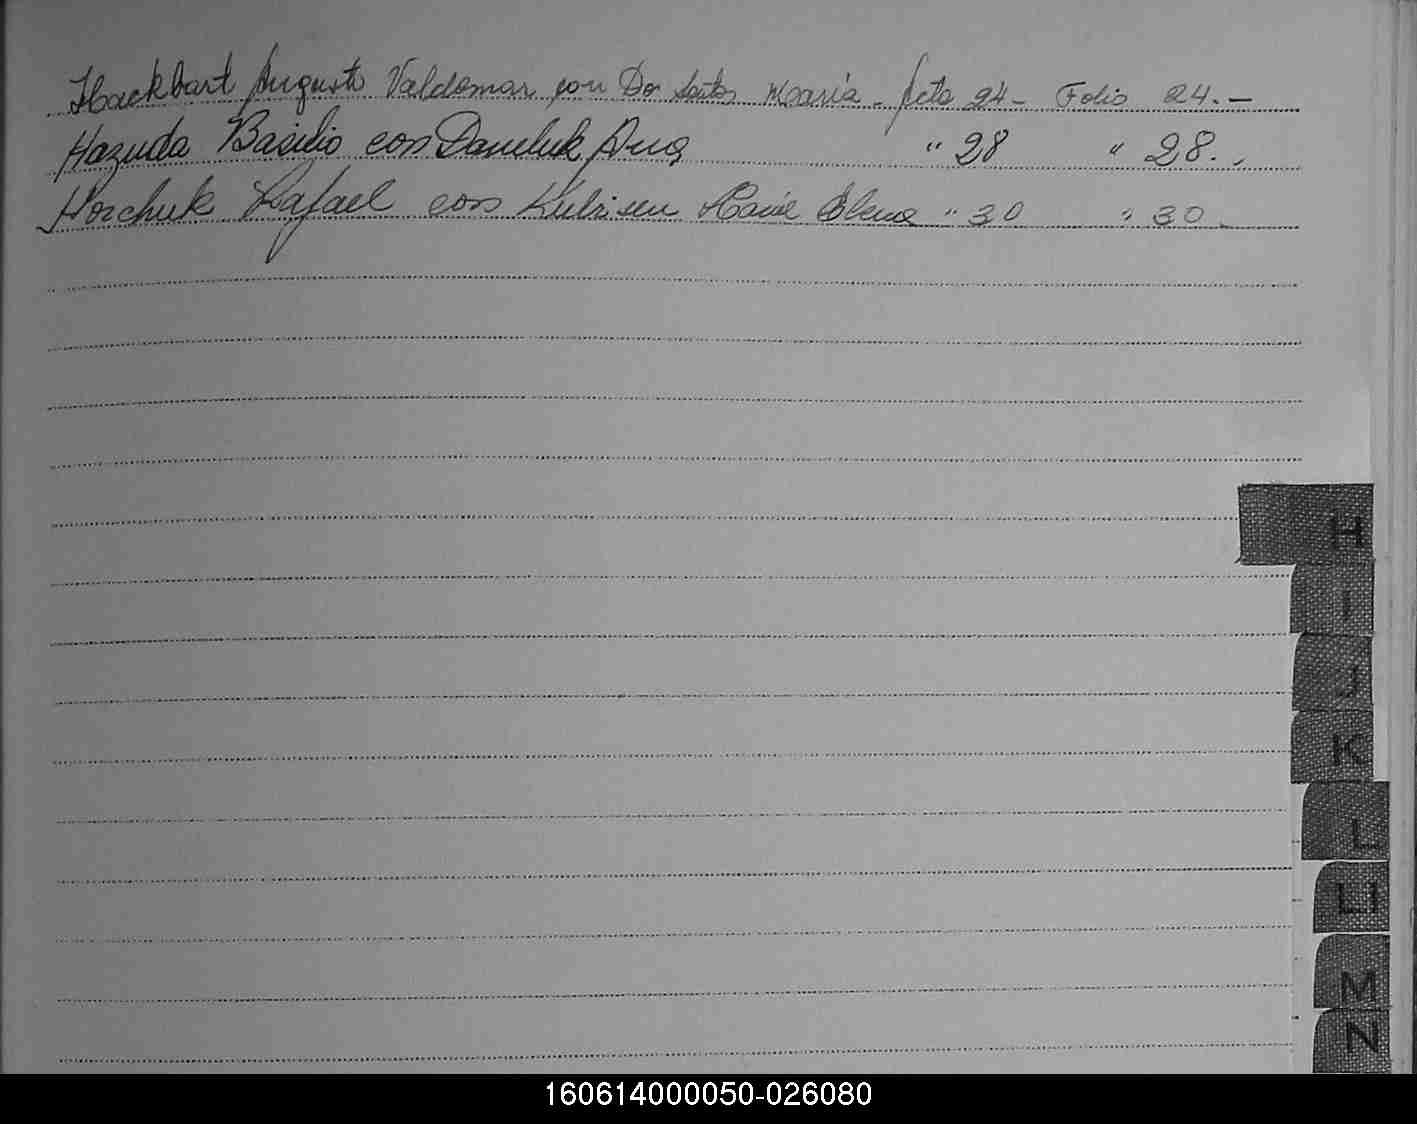 Hackbart Augusto Valdemar con Dos Santos Maria. Acta 24 - Folio 24. -
Hazuda Basilio con Daneluk Ana " 28 " 28. -
Horchuk Rafael con María Elena " 30 " 30 -
H
I
J
K
L
Ll
M
N
160614000050-026080